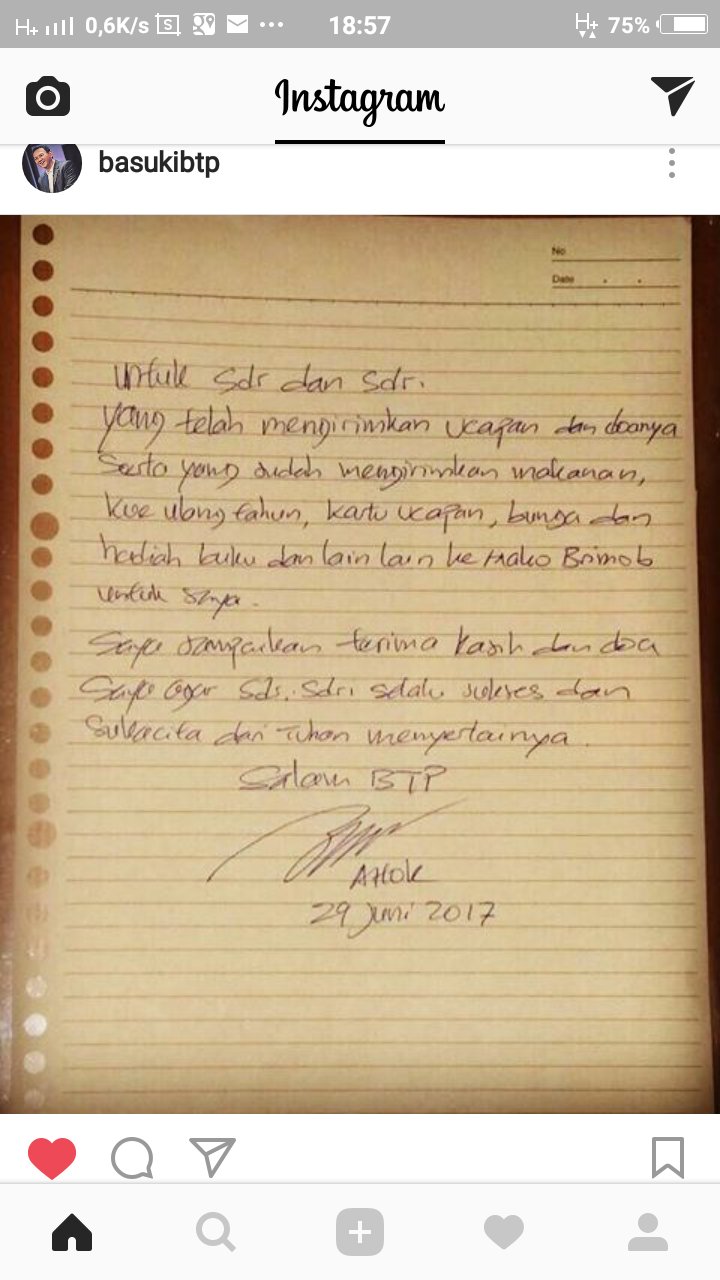 H+ 0,6K/s S 18:57 H+ 75%
Instagram
basukibtp
No
Date . .
Untuk Sdr dan Sdri
yang telah mengirimkan ucapan dan doanya
Serta yang sudah mengirimkan makanan,
kue ulang tahun, kartu ucapan, bunga dan
hadiah buku dan lain lain ke Mako Brimob
untuk saya.
Saya sampaikan terima kasih dan doa
Saya agar Sdr. Sdri selalu sukses dan
Sukacita dari Tuhan menyertainya.
Salam BTP
AHOK
29 Juni 2017